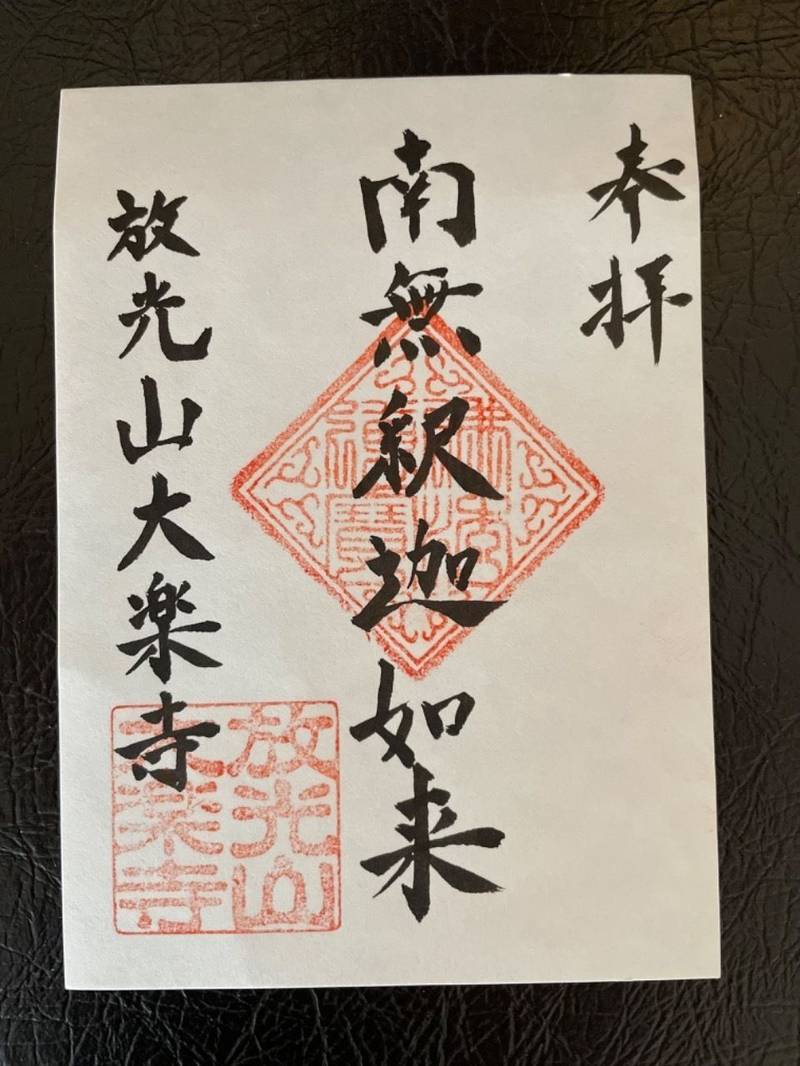 奉拝
南無釈迦如来
放光山大楽寺
佛法僧寶
放光山
大楽寺